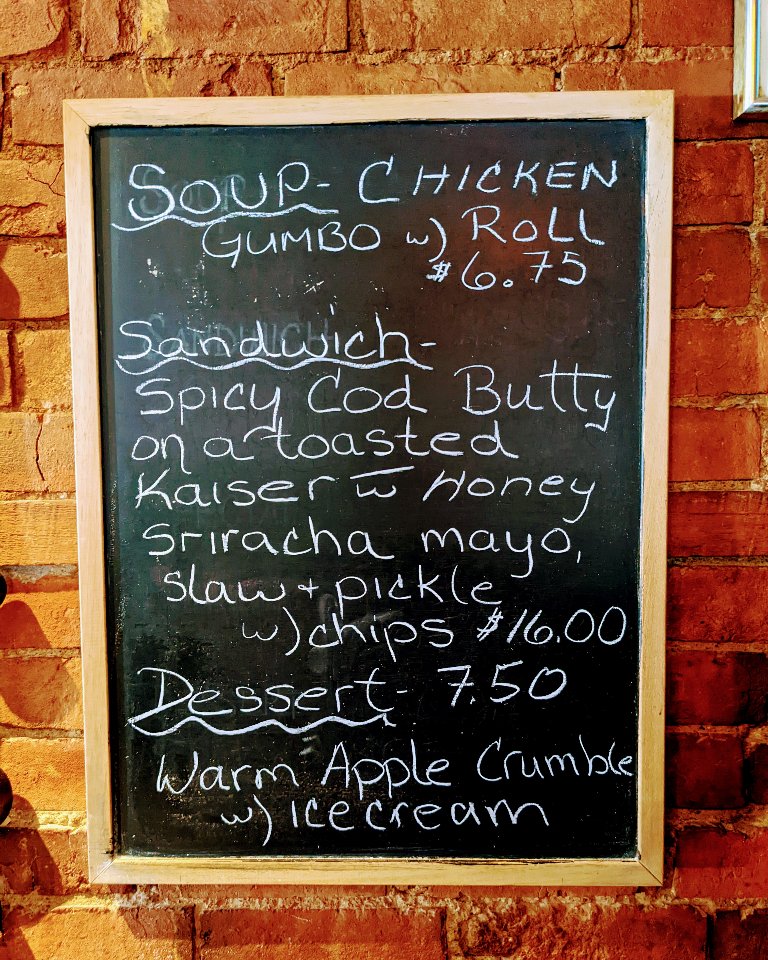 SOUP- CHICKEN
GUMBO w) ROLL
$6.75
Sandwich-
Spicy Cod Butty
on a toasted
Kaiser w Honey
Sriracha mayo,
slaw + pickle
w) chips $16.00
Dessert- 7.50
Warm Apple Crumble
w) icecream